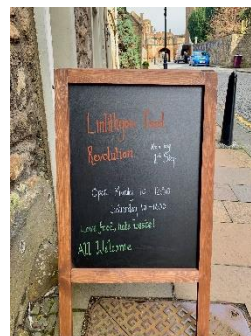 Linlithgow Food
Revolution
Open Monday 10-12:30
Saturday 10-12:30
Love food, hate waste!
All Welcome